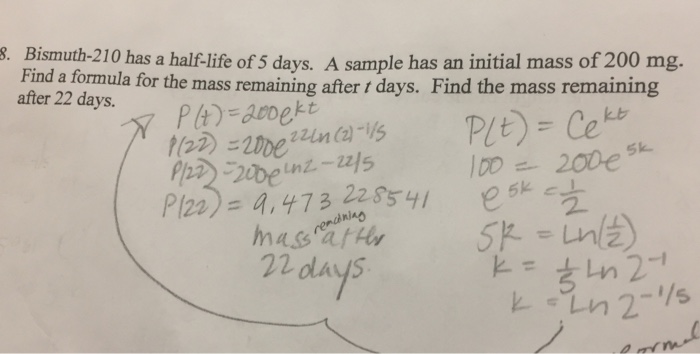 8. Bismuth-210 has a half-life of 5 days. A sample has an initial mass of 200 mg.
Find a formula for the mass remaining after t days. Find the mass remaining
after 22 days.
P(t)=200e^kt
P(22)=200e^22 ln(2)^-1/5
P(22)=200e^ln2^-22/5
P(22)=9.473228541
remaining
mass after
22 days.
P(t) = Ce^kt
100 = 200e^5k
e^5k = 1/2
5k = Ln(1/2)
k = 1/5 Ln 2^-1
k = Ln 2^-1/5